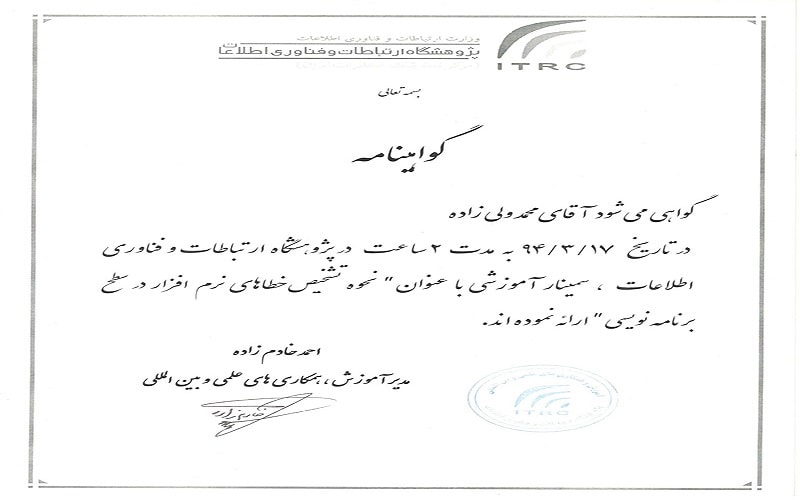 وزارت ارتباطات و فناوری اطلاعات
پژوهشگاه ارتباطات و فناوری اطلاعات
ITRC
بسمه تعالی
گواهینامه
گواهی می شود آقای محمد ولی زاده
در تاریخ ۹۴/۳/۱۷ به مدت ۲ ساعت در پژوهشگاه ارتباطات و فناوری
اطلاعات ، سمینار آموزشی با عنوان " نحوه تشخیص خطاهای نرم افزار در سطح
برنامه نویسی " ارائه نموده اند.
احمد خادم زاده
مدیر آموزش ، همکاری های علمی و بین المللی
ITRC